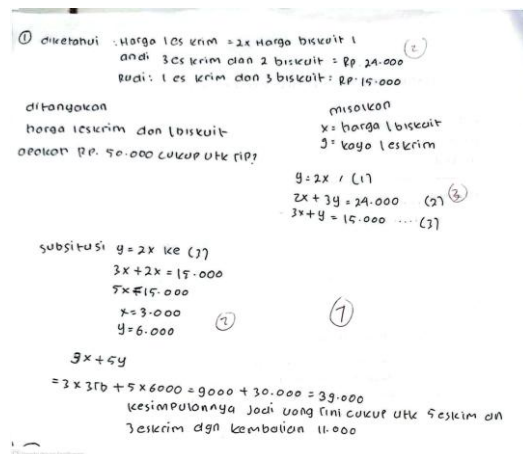 ① diketahui : Harga 1 es krim = 2x Harga biskuit 1
andi 3 es krim dan 2 biskuit = Rp 24.000
Rudi : 1 es krim dan 3 biskuit : RP. 15.000
(2)
ditanyakan
harga 1 eskrim dan 1 biskuit
apakah Rp. 50.000 cukup utk
misalkan
x = harga 1 biskuit
y = 1 eskrim
y = 2x (1)
2x + 3y = 24.000 (2)
3x + y = 15.000 .... (3)
(3)
subsitusi y = 2x ke (3)
3x + 2x = 15.000
5x = 15.000
x = 3.000
y = 6.000
(2)
(7)
3x + 5y
= 3 x + 5 x 6000 = 9000 + 30.000 = 39.000
kesimpulannya Jadi uang rini cukup utk 5 eskim dn
3 eskrim dgn kembalian 11.000